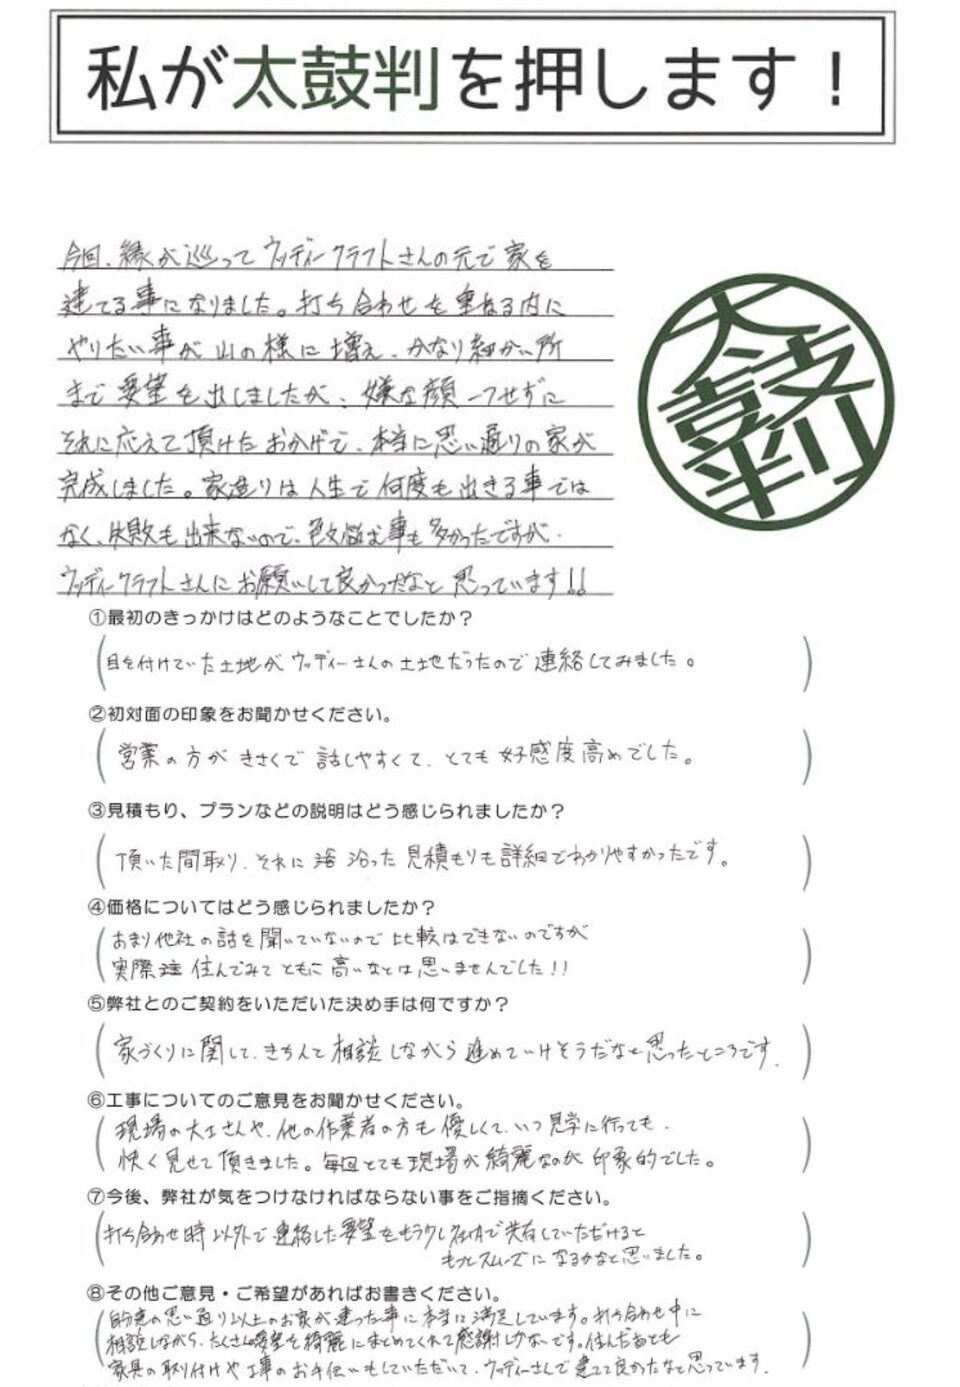 私が太鼓判を押します！
今回、縁が巡って ウッディークラフトさんの元で 家を
建てる事になりました。打ち合わせを重ねる内に
やりたい事が 山の様に 増え、かなり細かい所
まで 要望を出しましたが、嫌な顔一つせずに
それに応えて頂けたおかげで、本当に思い通りの家が
完成しました。家造りは人生で何度も出きる事では
なく、失敗も出来ないので、色々悩む事も多かったですが、
ウッディークラフトさんにお願いして良かったなと思っています!!
太鼓判
①最初のきっかけはどのようなことでしたか？
目を付けていた土地が ウッディーさんの土地だったので連絡してみました。
②初対面の印象をお聞かせください。
営業の方が きさくで 話しやすくて、とても 好感度高めでした。
③見積もり、プランなどの説明はどう感じられましたか？
頂いた間取り、それに 沿った 見積もりも詳細でわかりやすかったです。
④価格についてはどう感じられましたか？
あまり他社の話を聞いていないので 比較はできないのですが
実際 住んでみて ともに 高いなとは思いませんでした!!
⑤弊社とのご契約をいただいた決め手は何ですか？
家づくりに関して、きちんと相談しながら 進めていけそうだなと思ったところです。
⑥工事についてのご意見をお聞かせください。
現場の大工さんや、他の作業者の方も優しくて、いつ見学に行っても、
快く見せて頂きました。毎回とても現場が綺麗なのが 印象的でした。
⑦今後、弊社が気をつけなければならない事をご指摘ください。
打ち合わせ時以外で連絡した要望をもう少し 共有していただけると
もっとスムーズに なるかなと思いました。
⑧その他ご意見・ご希望があればお書きください。
の思い通り以上のお家が建った事に本当に満足しています。打ち合わせ中に
相談しながら、たくさん要望を綺麗にまとめてくれて感謝しかないです。住んだあとも
家具の取り付けや工事のお手伝いもしていただいて、ウッディーさんで建てて良かったなと思っています。